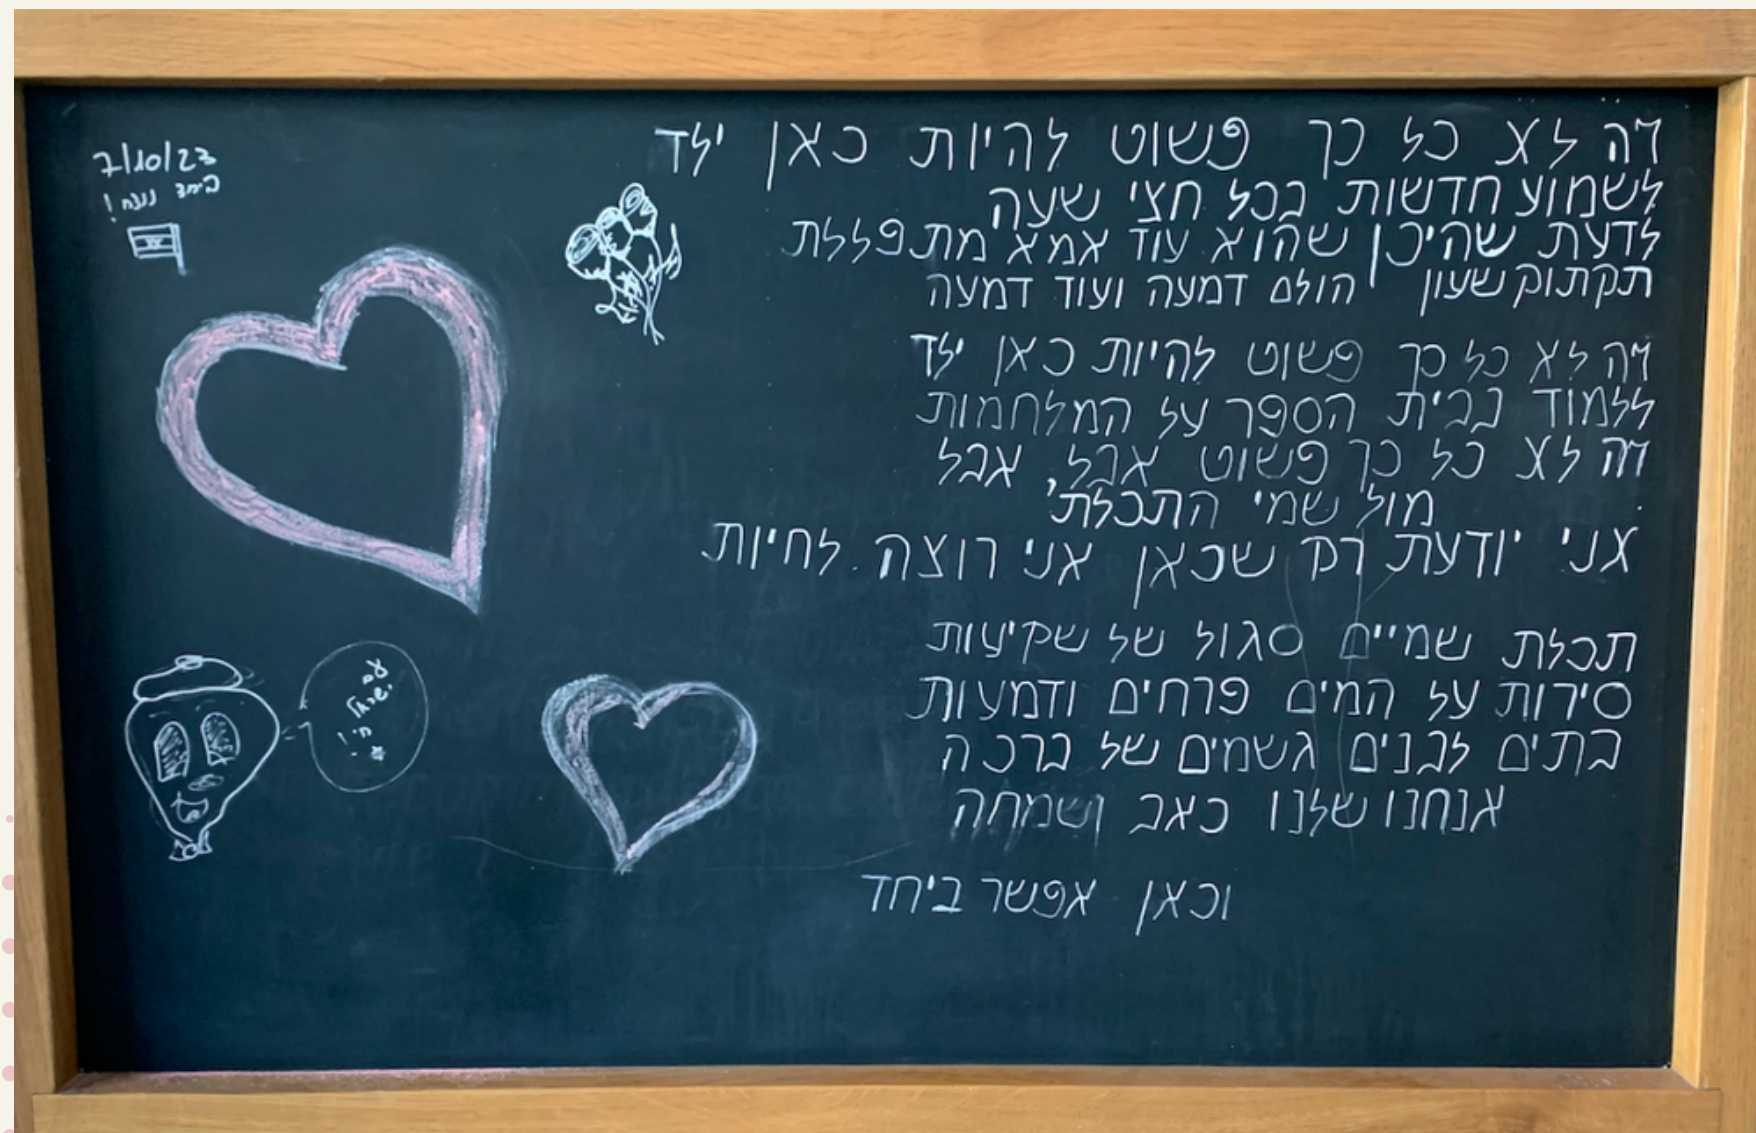 זה לא כל כך פשוט להיות כאן ילד
לשמוע חדשות בכל חצי שעה
לדעת שהיכן שהוא עוד אמא מתפללת
תקתוק שעון הולם דמעה ועוד דמעה
זה לא כל כך פשוט להיות כאן ילד
ללמוד בבית הספר על המלחמות
זה לא כל כך פשוט אבל, אבל
מול שמי התכלת
אני יודעת רק שכאן אני רוצה לחיות
תכלת שמיים סגול של שקיעות
סירות על המים פרחים ודמעות
בתים לבנים גשמים של ברכה
אנחנו שלנו כאב ושמחה
וכאן אפשר ביחד
7/10/23
ביחד ננצח!
עם
ישראל
חי!